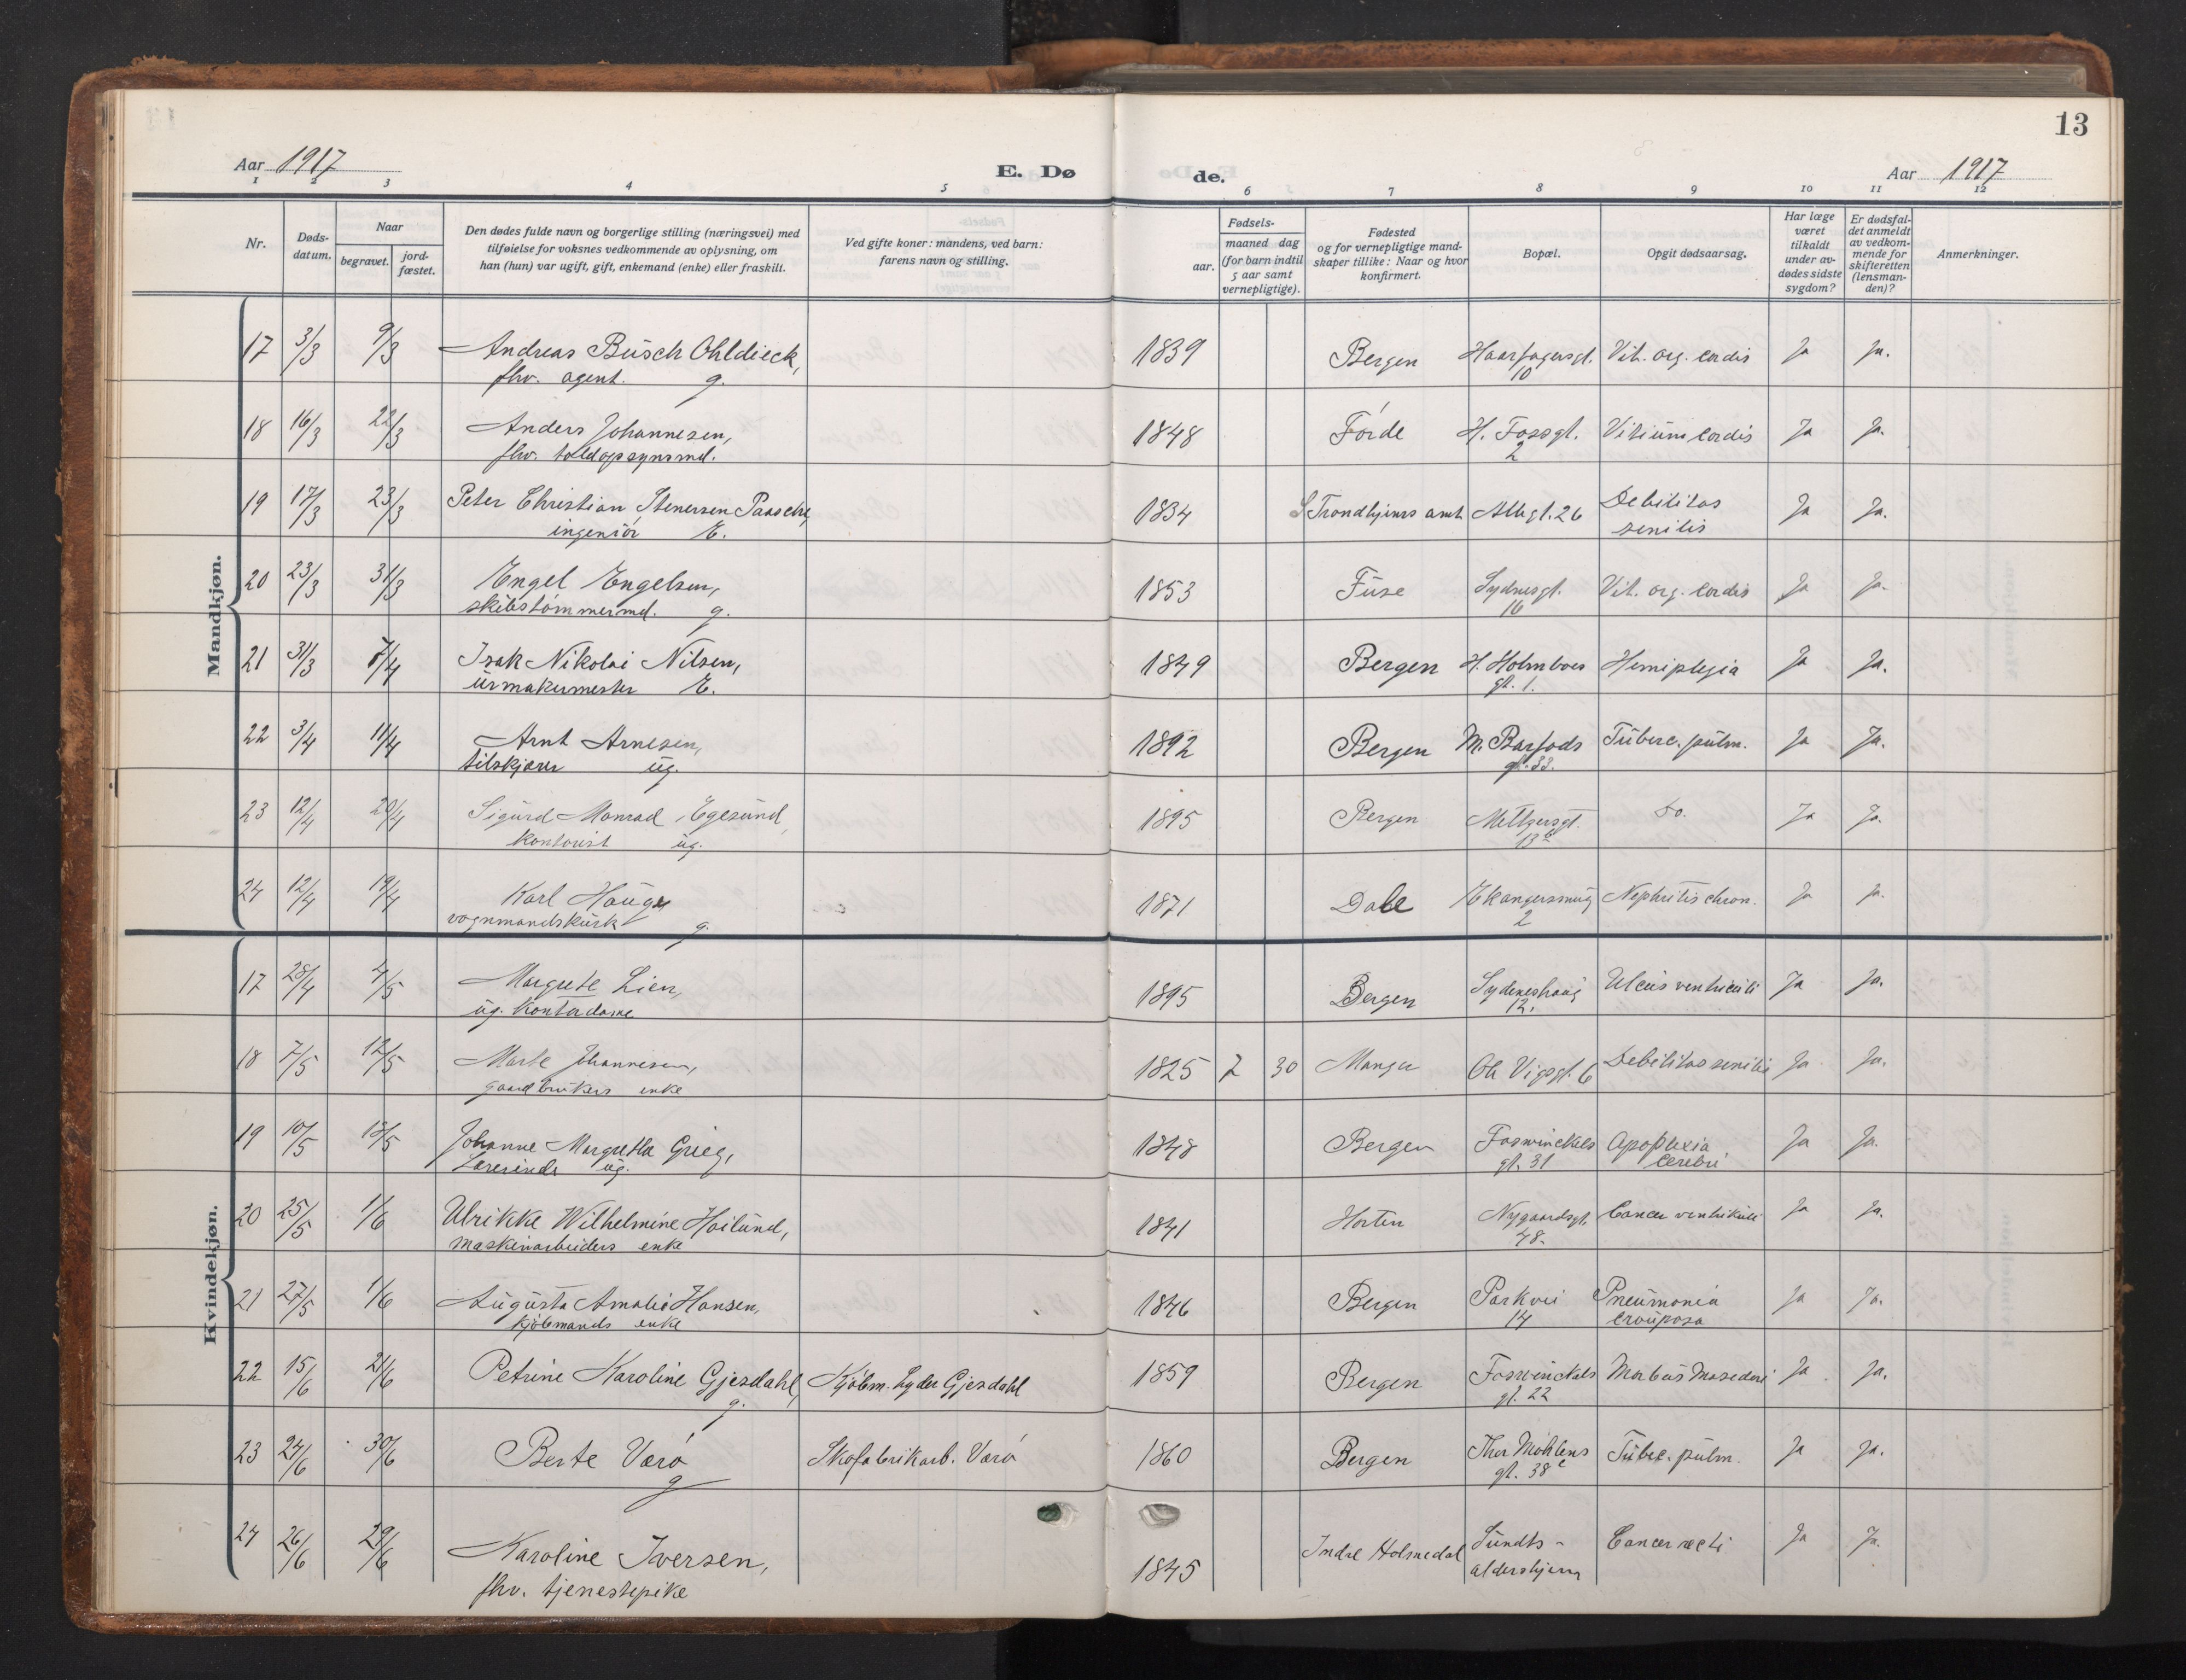 13
Aar 1917
E. Dø
de.
Aar 1917
1 2 3 4 5 6 7 8 9 10 11 12
Nr.
Døds-
datum.
Naar
begravet.
jord-
fæstet.
Den dødes fulde navn og borgerlige stilling (næringsvei) med
tilføielse for voksnes vedkommende av oplysning, om
han (hun) var ugift, gift, enkemand (enke) eller fraskilt.
Ved gifte koner: mandens, ved barn:
farens navn og stilling.
Fødsels-
aar.
maaned dag
(for barn indtil
5 aar samt
vernepligtige).
Fødested
og for vernepligtige mand-
skaper tillike: Naar og hvor
konfirmert.
Bopæl.
Opgit dødsaarsag.
Har læge
været
tilkaldt
under av-
dødes sidste
sygdom?
Er dødsfal-
det anmeldt
av vedkom-
mende for
skifteretten
(lensman-
den)?
Anmerkninger.
Mandkjøn.
17 3/3 9/3 Andreas Busch Ohldieck, 1839 Bergen Haarfagersgt. Vit. org. cordis Ja Ja.
fhv. agent. g. 10
18 16/3 22/3 Anders Johannesen, 1848 Førde H. Fossgt. Vitium cordis Ja Ja.
fhv. toldopsynsmd. 2
19 17/3 23/3 Peter Christian Stenersen Paasche, 1834 S Trondhjems amt Allégt. 26 Debilitas Ja Ja.
ingeniør E. senilis
20 23/3 31/3 Engel Engelsen, 1853 Fuse Sydnesgt. Vit. org. cordis Ja Ja.
skibstømmermd. g. 16
21 31/3 7/4 Isak Nikolai Nilsen, 1849 Bergen H. Holmboes Hemiplegia Ja Ja.
urmakermester E. gt. 1.
22 3/4 11/4 Arnt Arnesen, 1892 Bergen M. Barfods Tuberc. pulm. Ja Ja.
tilskjærer ug. gt. 33.
23 12/4 20/4 Sigurd Monrad Egesund, 1895 Bergen Meltzersgt. Do. Ja Ja.
kontorist ug.
24 12/4 19/4 Karl Hauge 1871 Dale Ekangersmug Nephritis chron. Ja Ja.
vognmandskusk g. 2
Kvindekjøn.
17 28/4 4/5 Margrete Lien, 1895 Bergen Sydneshaug Ulcus ventriculi Ja Ja.
ug. kontordame 12.
18 7/5 12/5 Marte Johannesen, 1825 7 30 Manger Ole Vigsgt. 6 Debilitas senilis Ja Ja.
gaardbrukers enke
19 10/5 15/5 Johanne Margretha Grieg, 1848 Bergen Foswinckels Apoplexia Ja Ja.
Lærerinde ug. gt. 31 cerebri
20 25/5 1/6 Ulrikke Wilhelmine Høilund, 1841 Horten Nygaardsgt. Cancer ventrikuli Ja Ja.
maskinarbeiders enke 48.
21 27/5 1/6 Augusta Amalie Hansen, 1846 Bergen Parkvei Pneumonia Ja Ja.
kjøbmands enke 14 crouposa
22 15/6 21/6 Petrine Karoline Gjesdahl, Kjøbm. Lyder Gjesdahl 1859 Bergen Foswinckels Morbus Ja Ja.
g. gt. 22
23 24/6 30/6 Berte Værø Skofabrikarb. Værø 1860 Bergen Thor Møhlens Tuberc. pulm. Ja Ja.
g gt. 38c
24 26/6 29/6 Karoline Iversen, 1845 Indre Holmedal Sundts- Cancer recti Ja Ja.
fhv. tjenestepike aldershjem